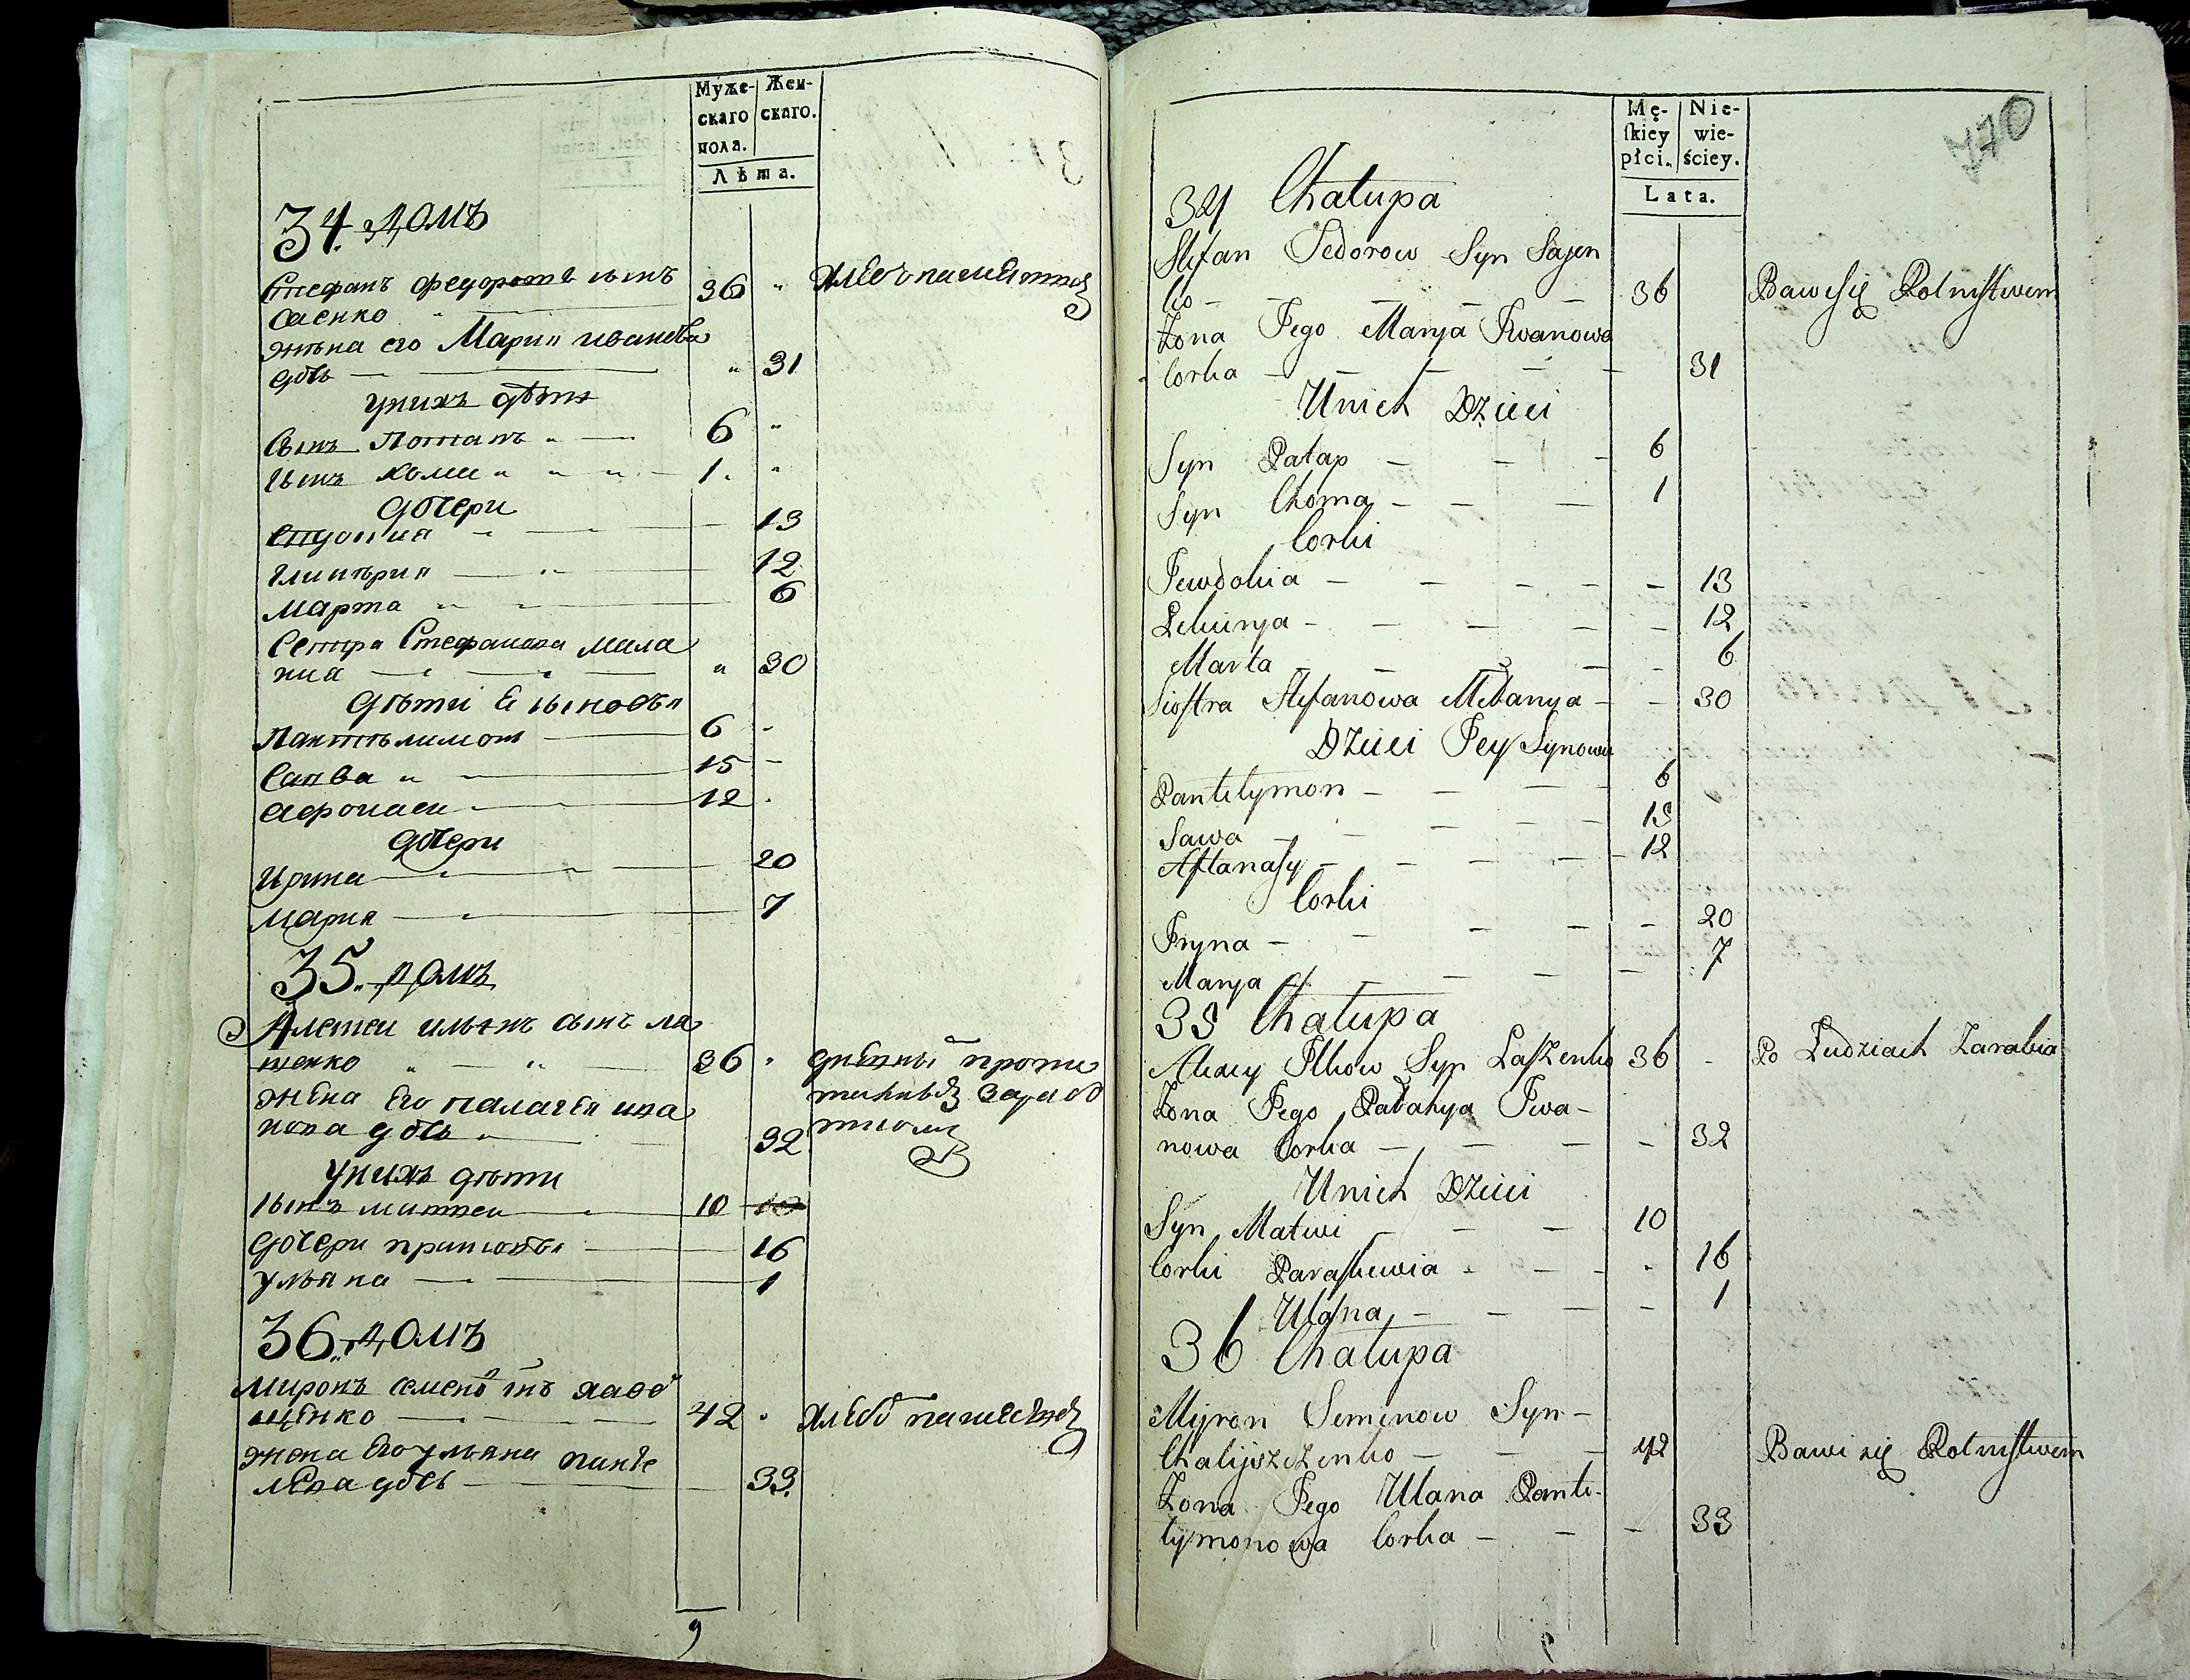 Муже-
скаго
пола.
Жен-
скаго.
Лѣта.
34. домъ
Стефанъ Федоровъ сынъ
Саенко 36
жена его Мария иванова
дочь 31
У нихъ дѣти
Сынъ Потапъ 6
Сынъ Хома 1
дочери
Евдокия 13
Гликѣрия 12
Марта 6
Сестра Стефанова Мила
ния 30
дѣти Ее сыновья
Пантелимон 6
Савва 15
Афонасеи 12
дочери
Ирина 20
Мария 7
35. домъ
Алексеи ильинъ сынъ ла
шенко 36
жена Его палагея ива
нова дочь 32
У нихъ дѣти
Сынъ матвеи 10 10
дочери
16
Ульяна 1
36. домъ
Миронъ
42
жена Его ульяна панте
дочь 33
9
Mę-
ſkiey
płci.
Nie-
wie-
ściey.
Lata.
770
34 Chałupa
Stefan Fedorow Syn Sajen
ko 36 Bawi się Rolnistwem
Żona Jego Marya Iwanowa
Corka 31
U nich Dzieci
Syn Patap 6
Syn Choma 1
Corki
Jewdokia 13
Lekierya 12
Marta 6
Siostra Stefanowa Melanya 30
Dzieci Jey Synowie
Pantelymon 6
Sawa 15
Aftanasy 12
Corki
Iryna 20
Marya 7
35 Chałupa
Alexey Ilkow Syn Laszenko 36 Po Ludziach Zarabia
Żona Jego Pałahya Iwa-
nowa Corka 32
U nich Dzieci
Syn Matwi 10
Corki Paraskewia 16
Ulana 1
36 Chałupa
Myron Semenow Syn
Chalijszczenko 42 Bawi się Rolnistwem
Żona Jego Ulana Pante-
lymonowa Corka 33